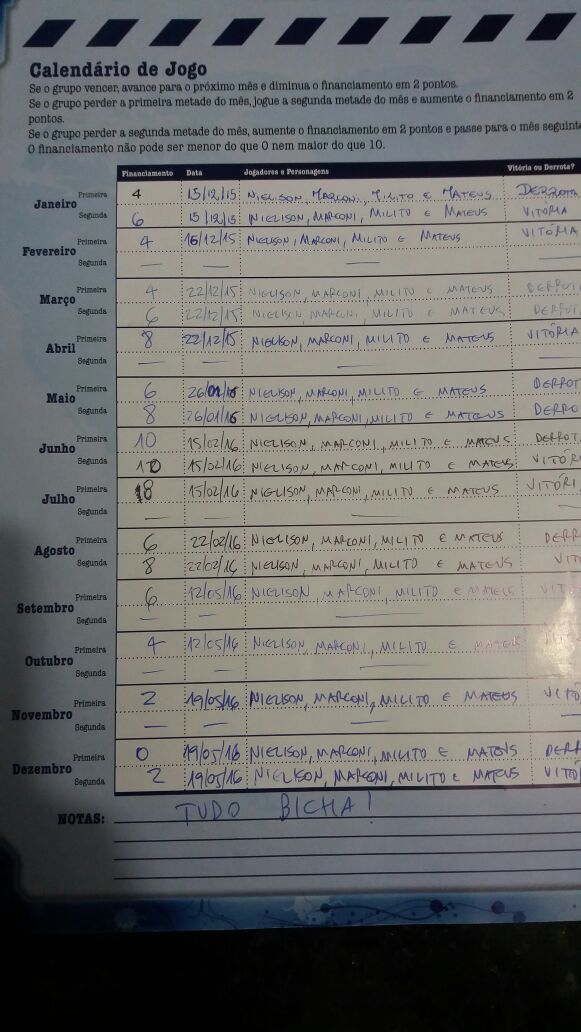 Calendário de Jogo
Se o grupo vencer, avance para o próximo mês e diminua o financiamento em 2 pontos.
Se o grupo perder a primeira metade do mês, jogue a segunda metade do mês e aumente o financiamento em 2
pontos.
Se o grupo perder a segunda metade do mês, aumente o financiamento em 2 pontos e passe para o mês seguinte
O financiamento não pode ser menor do que 0 nem maior do que 10.
Financiamento Data Jogadores e Personagens Vitória ou Derrota?
Janeiro Primeira 4 15/12/15 NIELISON, MARCONI, MILITO E MATEUS DERROTA
Segunda 6 15/12/15 NIELISON, MARCONI, MILITO E MATEUS VITÓRIA
Fevereiro Primeira 4 16/12/15 NIELISON, MARCONI, MILITO E MATEUS VITÓRIA
Segunda — — — —
Março Primeira 4 22/12/15 NIELISON, MARCONI, MILITO E MATEUS DERROT
Segunda 6 22/12/15 NIELISON, MARCONI, MILITO E MATEUS DERROT
Abril Primeira 8 22/12/15 NIELISON, MARCONI, MILITO E MATEUS VITÓRIA
Segunda — — — —
Maio Primeira 6 26/01/16 NIELISON, MARCONI, MILITO E MATEUS DERROT
Segunda 8 26/01/16 NIELISON, MARCONI, MILITO E MATEUS DERRO
Junho Primeira 10 15/02/16 NIELISON, MARCONI, MILITO E MATEUS DERROT
Segunda 10 15/02/16 NIELISON, MARCONI, MILITO E MATEUS VITÓRI
Julho Primeira 8 15/02/16 NIELISON, MARCONI, MILITO E MATEUS VITÓRI
Segunda — — — —
Agosto Primeira 6 22/02/16 NIELISON, MARCONI, MILITO E MATEUS DERR
Segunda 8 22/02/16 NIELISON, MARCONI, MILITO E MATEUS VIT
Setembro Primeira 6 12/05/16 NIELISON, MARCONI, MILITO E MATEUS VITÓ
Segunda — — —
Outubro Primeira 4 12/05/16 NIELISON, MARCONI, MILITO E MATEUS
Segunda — — —
Novembro Primeira 2 19/05/16 NIELISON, MARCONI, MILITO E MATEUS VITÓ
Segunda — — —
Dezembro Primeira 0 19/05/16 NIELISON, MARCONI, MILITO E MATEUS DERR
Segunda 2 19/05/16 NIELISON, MARCONI, MILITO E MATEUS VITÓ
NOTAS: TUDO BICHA!